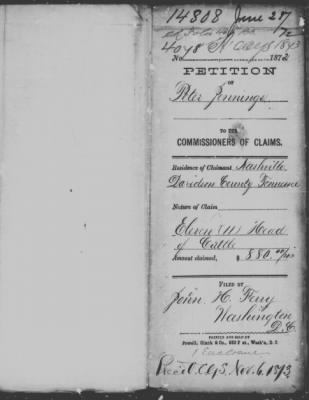 14808 June 27/72
4048
No. 1872
PETITION
OF
Peter Jennings
TO THE
COMMISSIONERS OF CLAIMS.
Residence of Claimant Nashville
Davidson County Tennessee
Nature of Claim
Eleven (11) Head
of Cattle
Amount claimed, $ 880.00/100
FILED BY
John H. Ferry
Washington
D.C.
PRINTED AND SOLD BY
Powell, Ginck & Co., 632 F st., Wash'n, D. C.
Rec'd C.C.S. Nov. 6, 1873